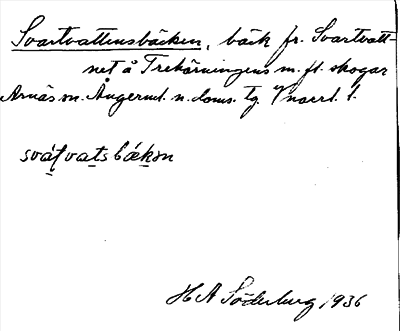 Svartvattensbäcken, bäck fr. Svartvatt-
net å Trekärningens m. fl. skogar
Arnäs sn. Ångerml. n. doms. tg. V norrl. l.
svátvatsbäkən
H A Söderberg 1936